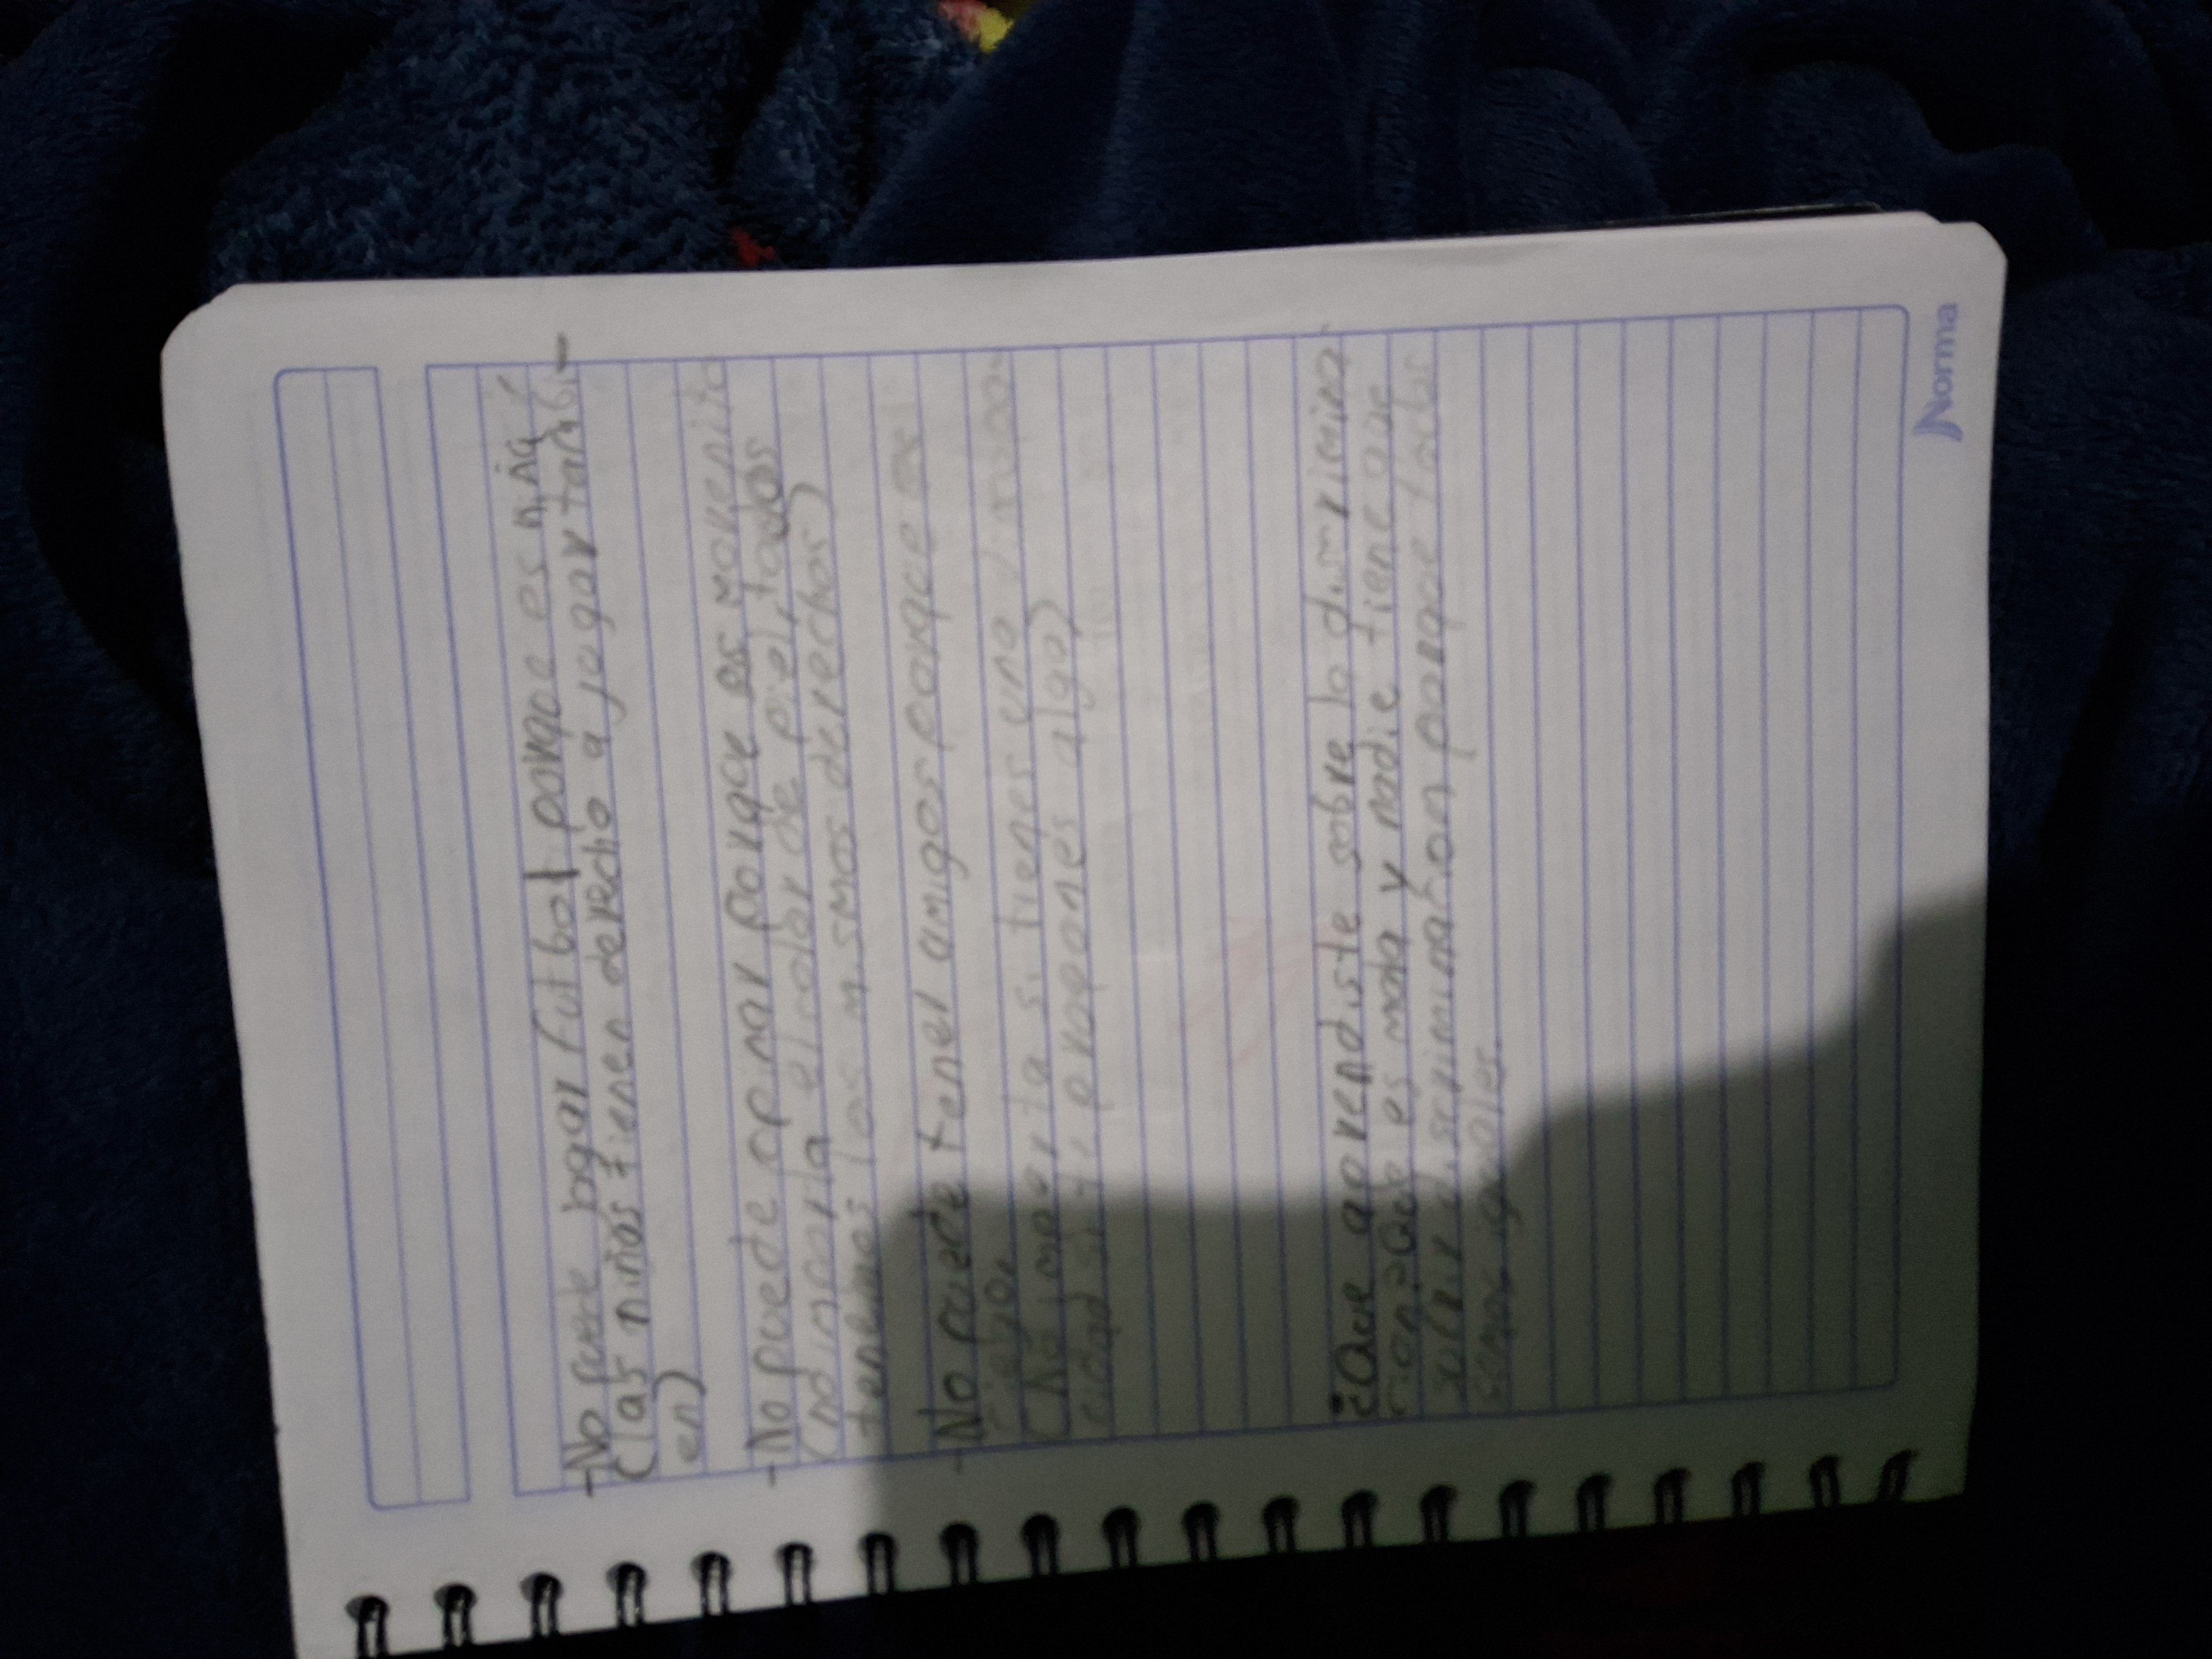 -No puede jogar futbol porque es niña
(las niñas tienen derecho a jogar tambi-
en)
-No puede opinar porque es morenito
(no importa el color de piel, todos
tenemos los mismos derechos)
-No puede tener amigos porque es
ciego.
(No importa si tienes una discapa-
cidad si te propones algo)
¿Que aprendiste sobre la discrimina-
cion? Que es mala y nadie tiene que
sufrir discriminacion porque todos
somos iguales.
Norma